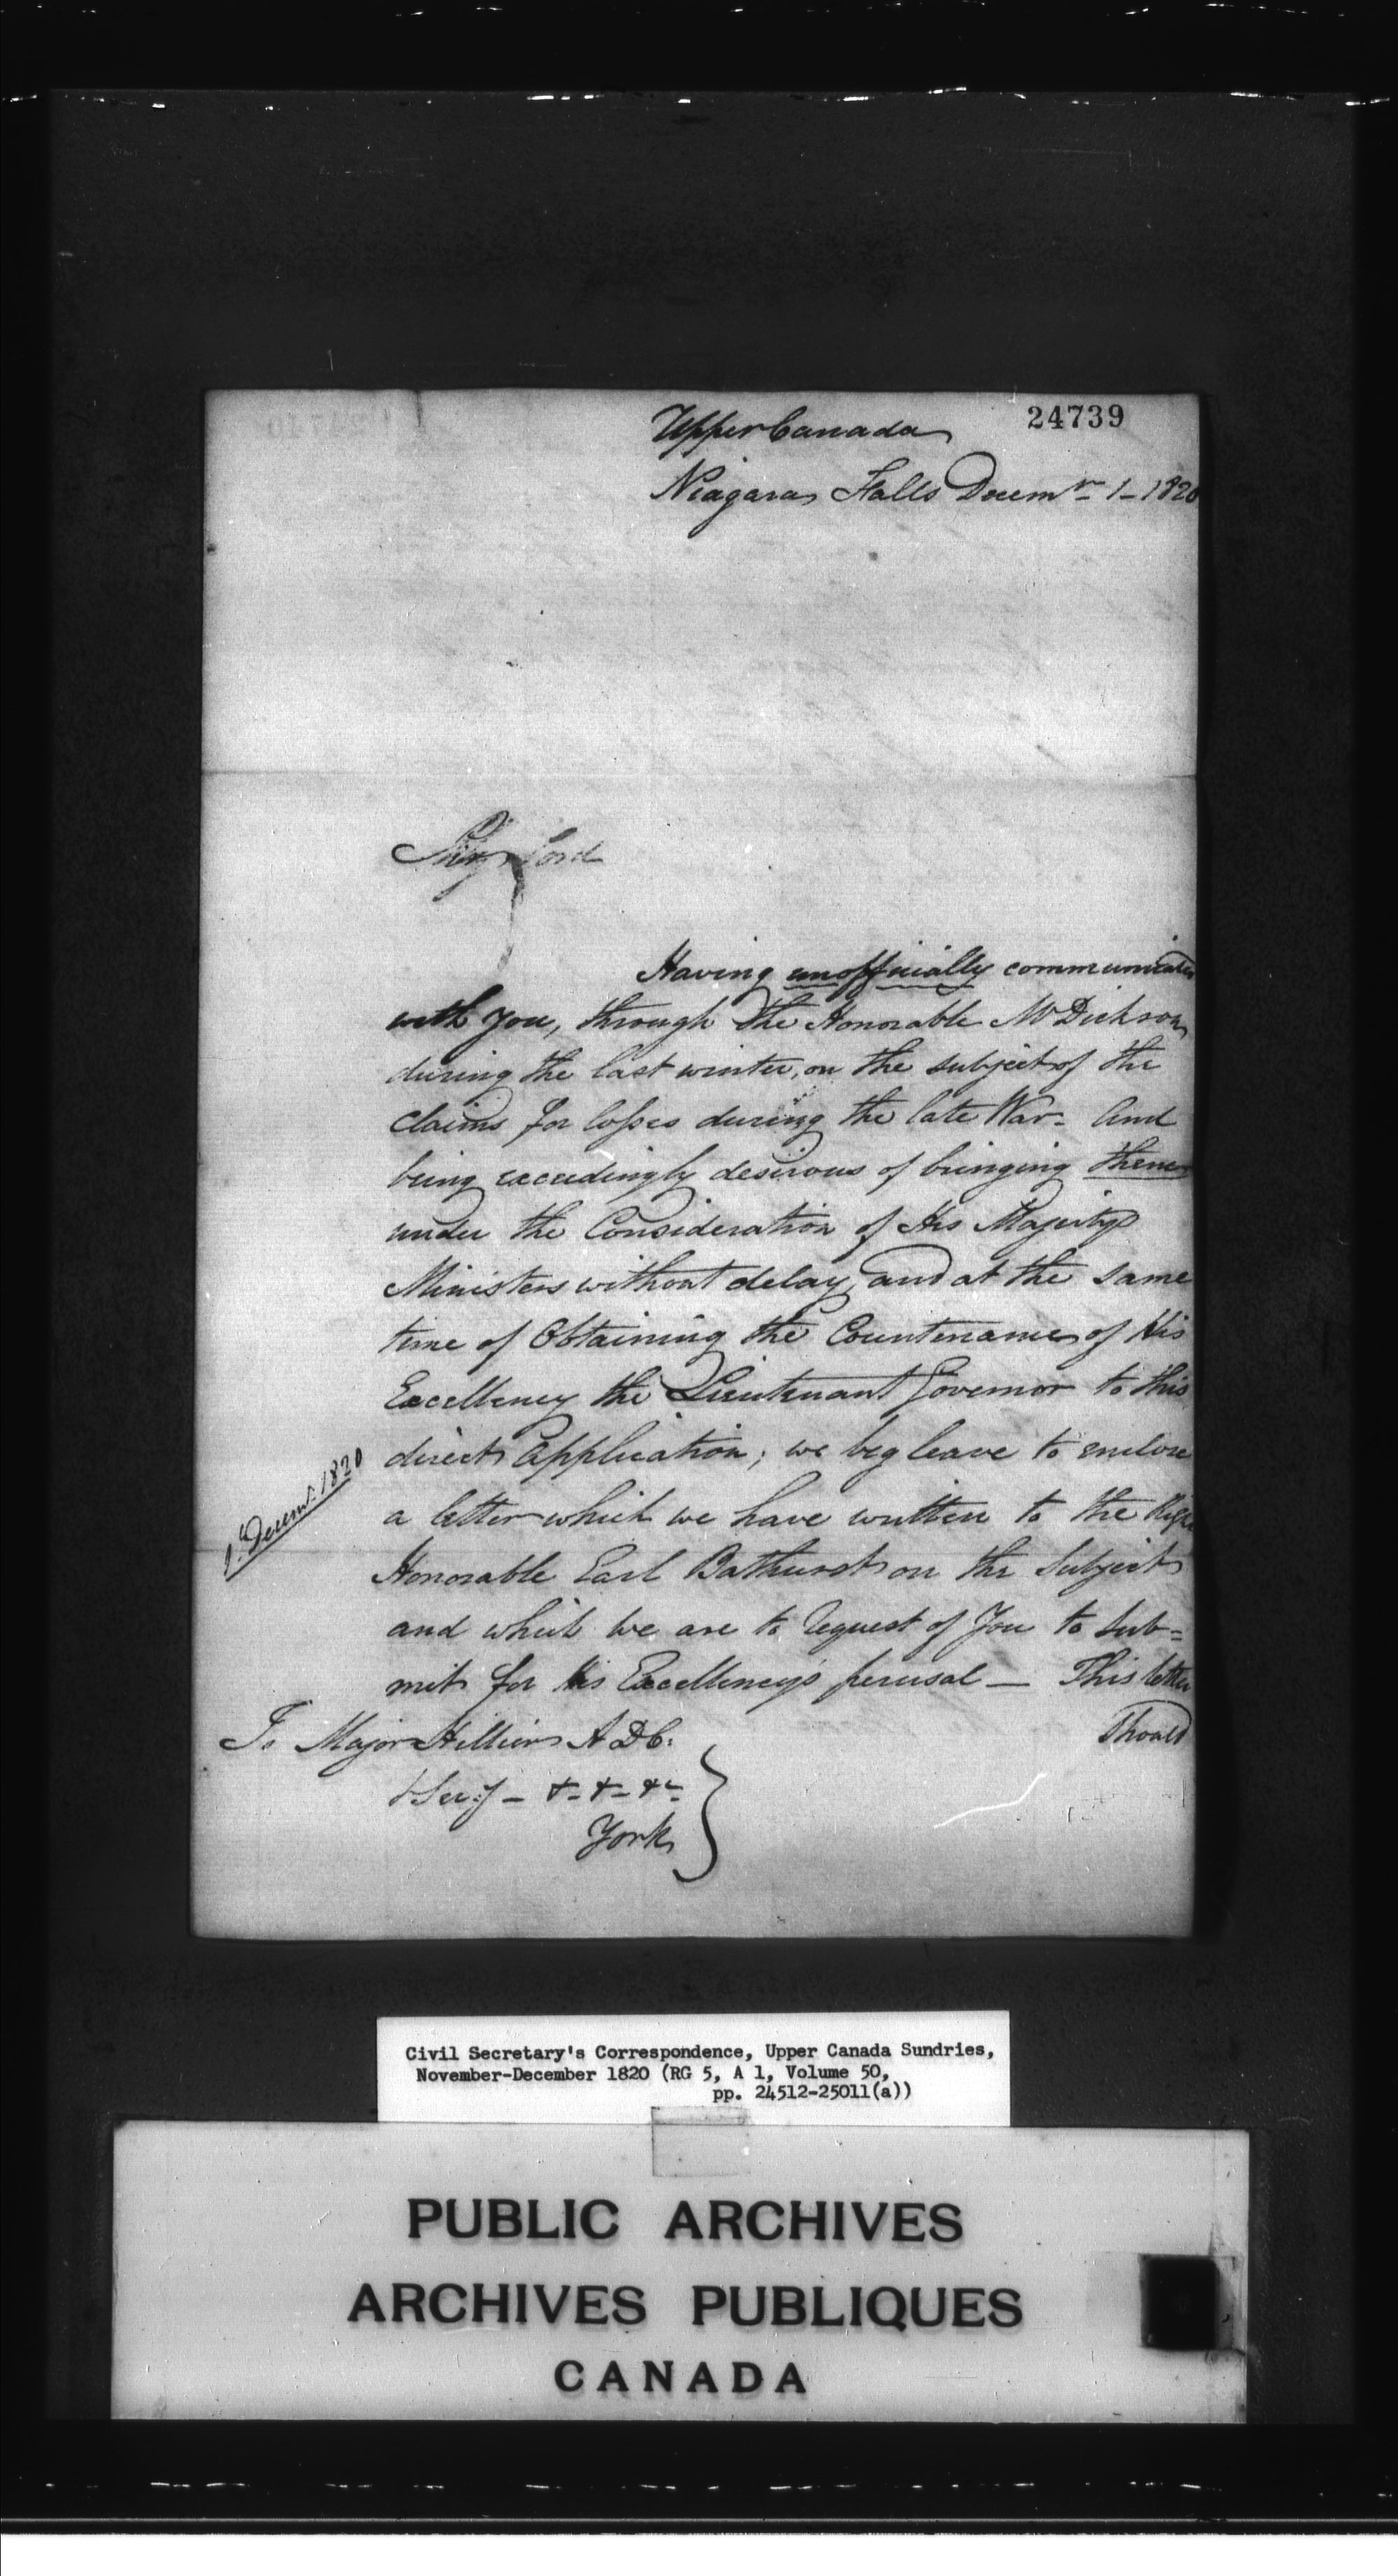 24739
Upper Canada
Niagara Falls Decemr 1 - 1820
Having unofficially communicated
with You, through the Honorable Mr Dickson
during the last winter, on the subject of the
claims for losses during the late War - And
being exceedingly desirous of bringing them
under the Consideration of His Majestys
Ministers without delay, and at the same
time of Obtaining the Countenance of His
Excellency the Lieutenant Governor to this
direct Application; we beg leave to enclose
a letter which we have written to the Right
Honorable Earl Bathurst on the Subject
and which we are to request of You to Sub=
mit for his Excellency's perusal — This letter
should
1. Decemr. 1820
To Major Hillier A D C.
& Secy - & - & - &c
York
Civil Secretary's Correspondence, Upper Canada Sundries,
November-December 1820 (RG 5, A 1, Volume 50,
pp. 24512-25011(a))
PUBLIC ARCHIVES
ARCHIVES PUBLIQUES
CANADA